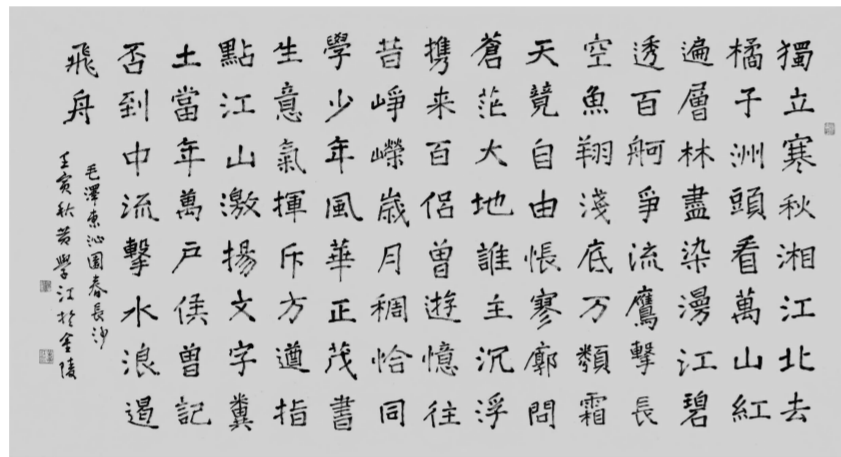 獨立寒秋湘江北去
橘子洲頭看萬山紅
遍層林盡染漫江碧
透百舸爭流鷹擊長
空魚翔淺底万類霜
天競自由悵寥廓問
蒼茫大地誰主沉浮
携来百侶曾遊憶往
昔崢嶸歲月稠恰同
學少年風華正茂書
生意氣揮斥方遒指
點江山激揚文字糞
土當年萬戶侯曾記
否到中流擊水浪遏
飛舟
毛澤東沁園春長沙
壬寅秋黄學江於金陵